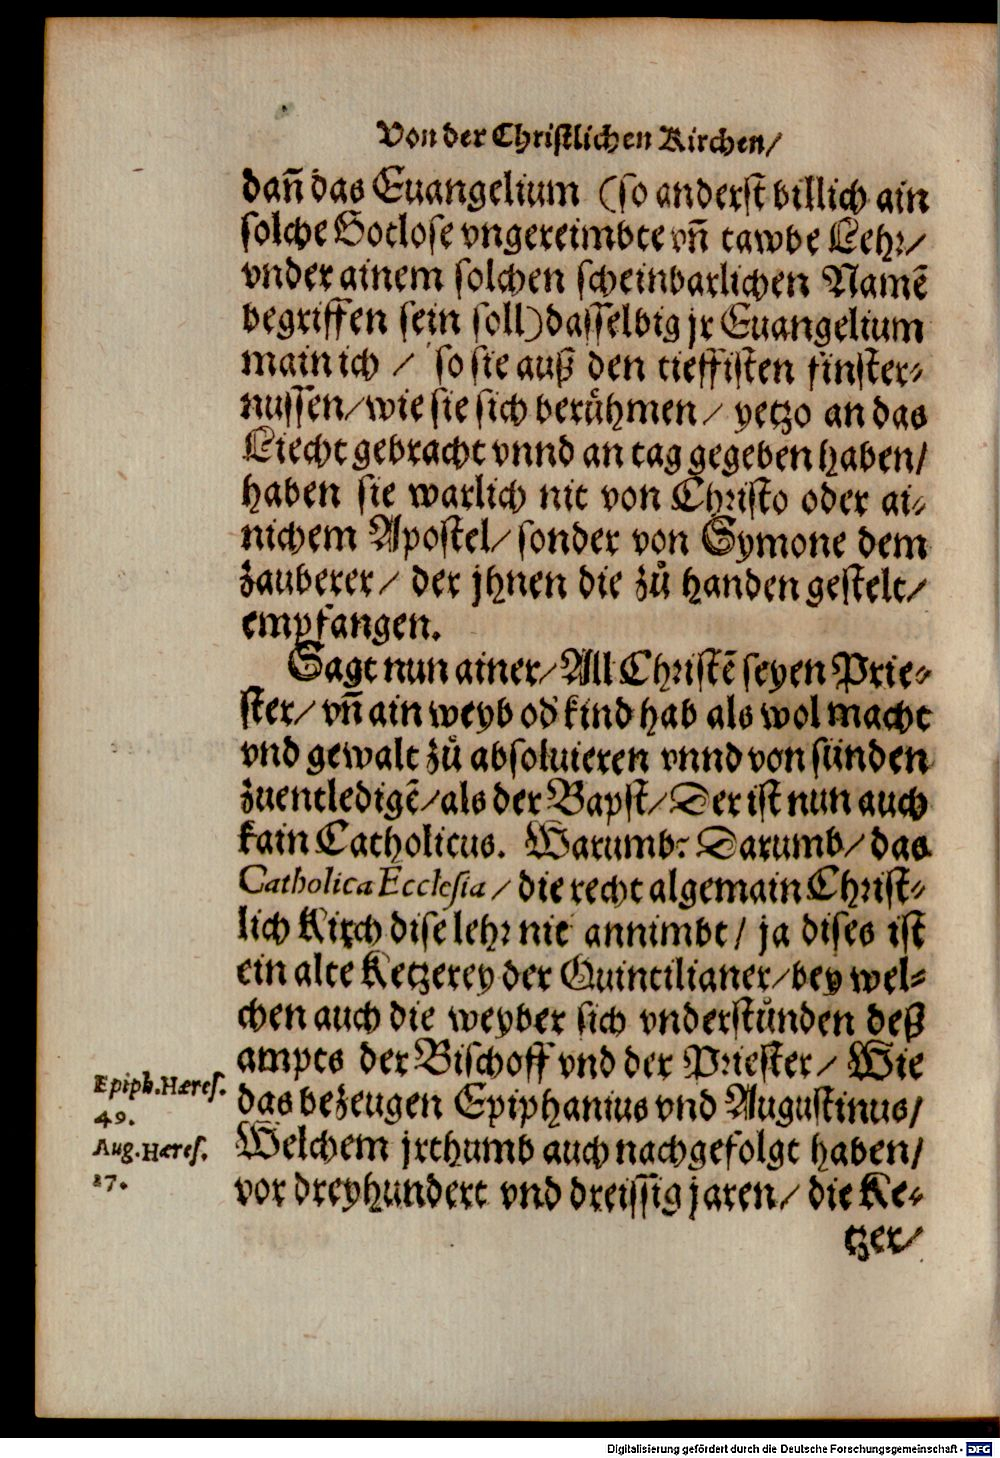 Von der Christlichen Kirchen/
dañ das Euangelium (so anderst billich ain
solche Gotlose vngereimbte vñ tawbe Lehr/
vnder ainem solchen scheinbarlichen Namẽ
begriffen sein soll) dasselbig jr Euangelium
main ich / so sie auß den tieffisten finster-
nussen/ wie sie sich berůhmen/ yetzo an das
Liecht gebracht vnnd an tag gegeben haben/
haben sie warlich nit von Christo oder ai-
nichem Apostel/ sonder von Symone dem
zauberer/ der jhnen die zů handen gestelt/
empfangen.
Sagt nun ainer/ All Christẽ seyen Prie-
ster/ vñ ain weyb od' kind hab als wol macht
vnd gewalt zů absoluieren vnnd von sünden
zuentledigẽ/ als der Bapst/ Der ist nun auch
kain Catholicus. Warumb: Darumb/ das
Catholica Ecclesia / die recht algemain Christ-
lich Kirch dise lehr nit annimbt/ ja dises ist
ein alte Ketzerey der Quintilianer/ bey wel-
chen auch die weyber sich vnderstůnden deß
ampts der Bischoff vnd der Priester/ Wie
das bezeugen Epiphanius vnd Augustinus/
Welchem jrthumb auch nachgefolgt haben/
vor dreyhundert vnd dreissig jaren/ die Ke-
tzer/
Epiph. Hæres.
49.
Aug. Hæres.
27.
Digitalisierung gefördert durch die Deutsche Forschungsgemeinschaft - DFG